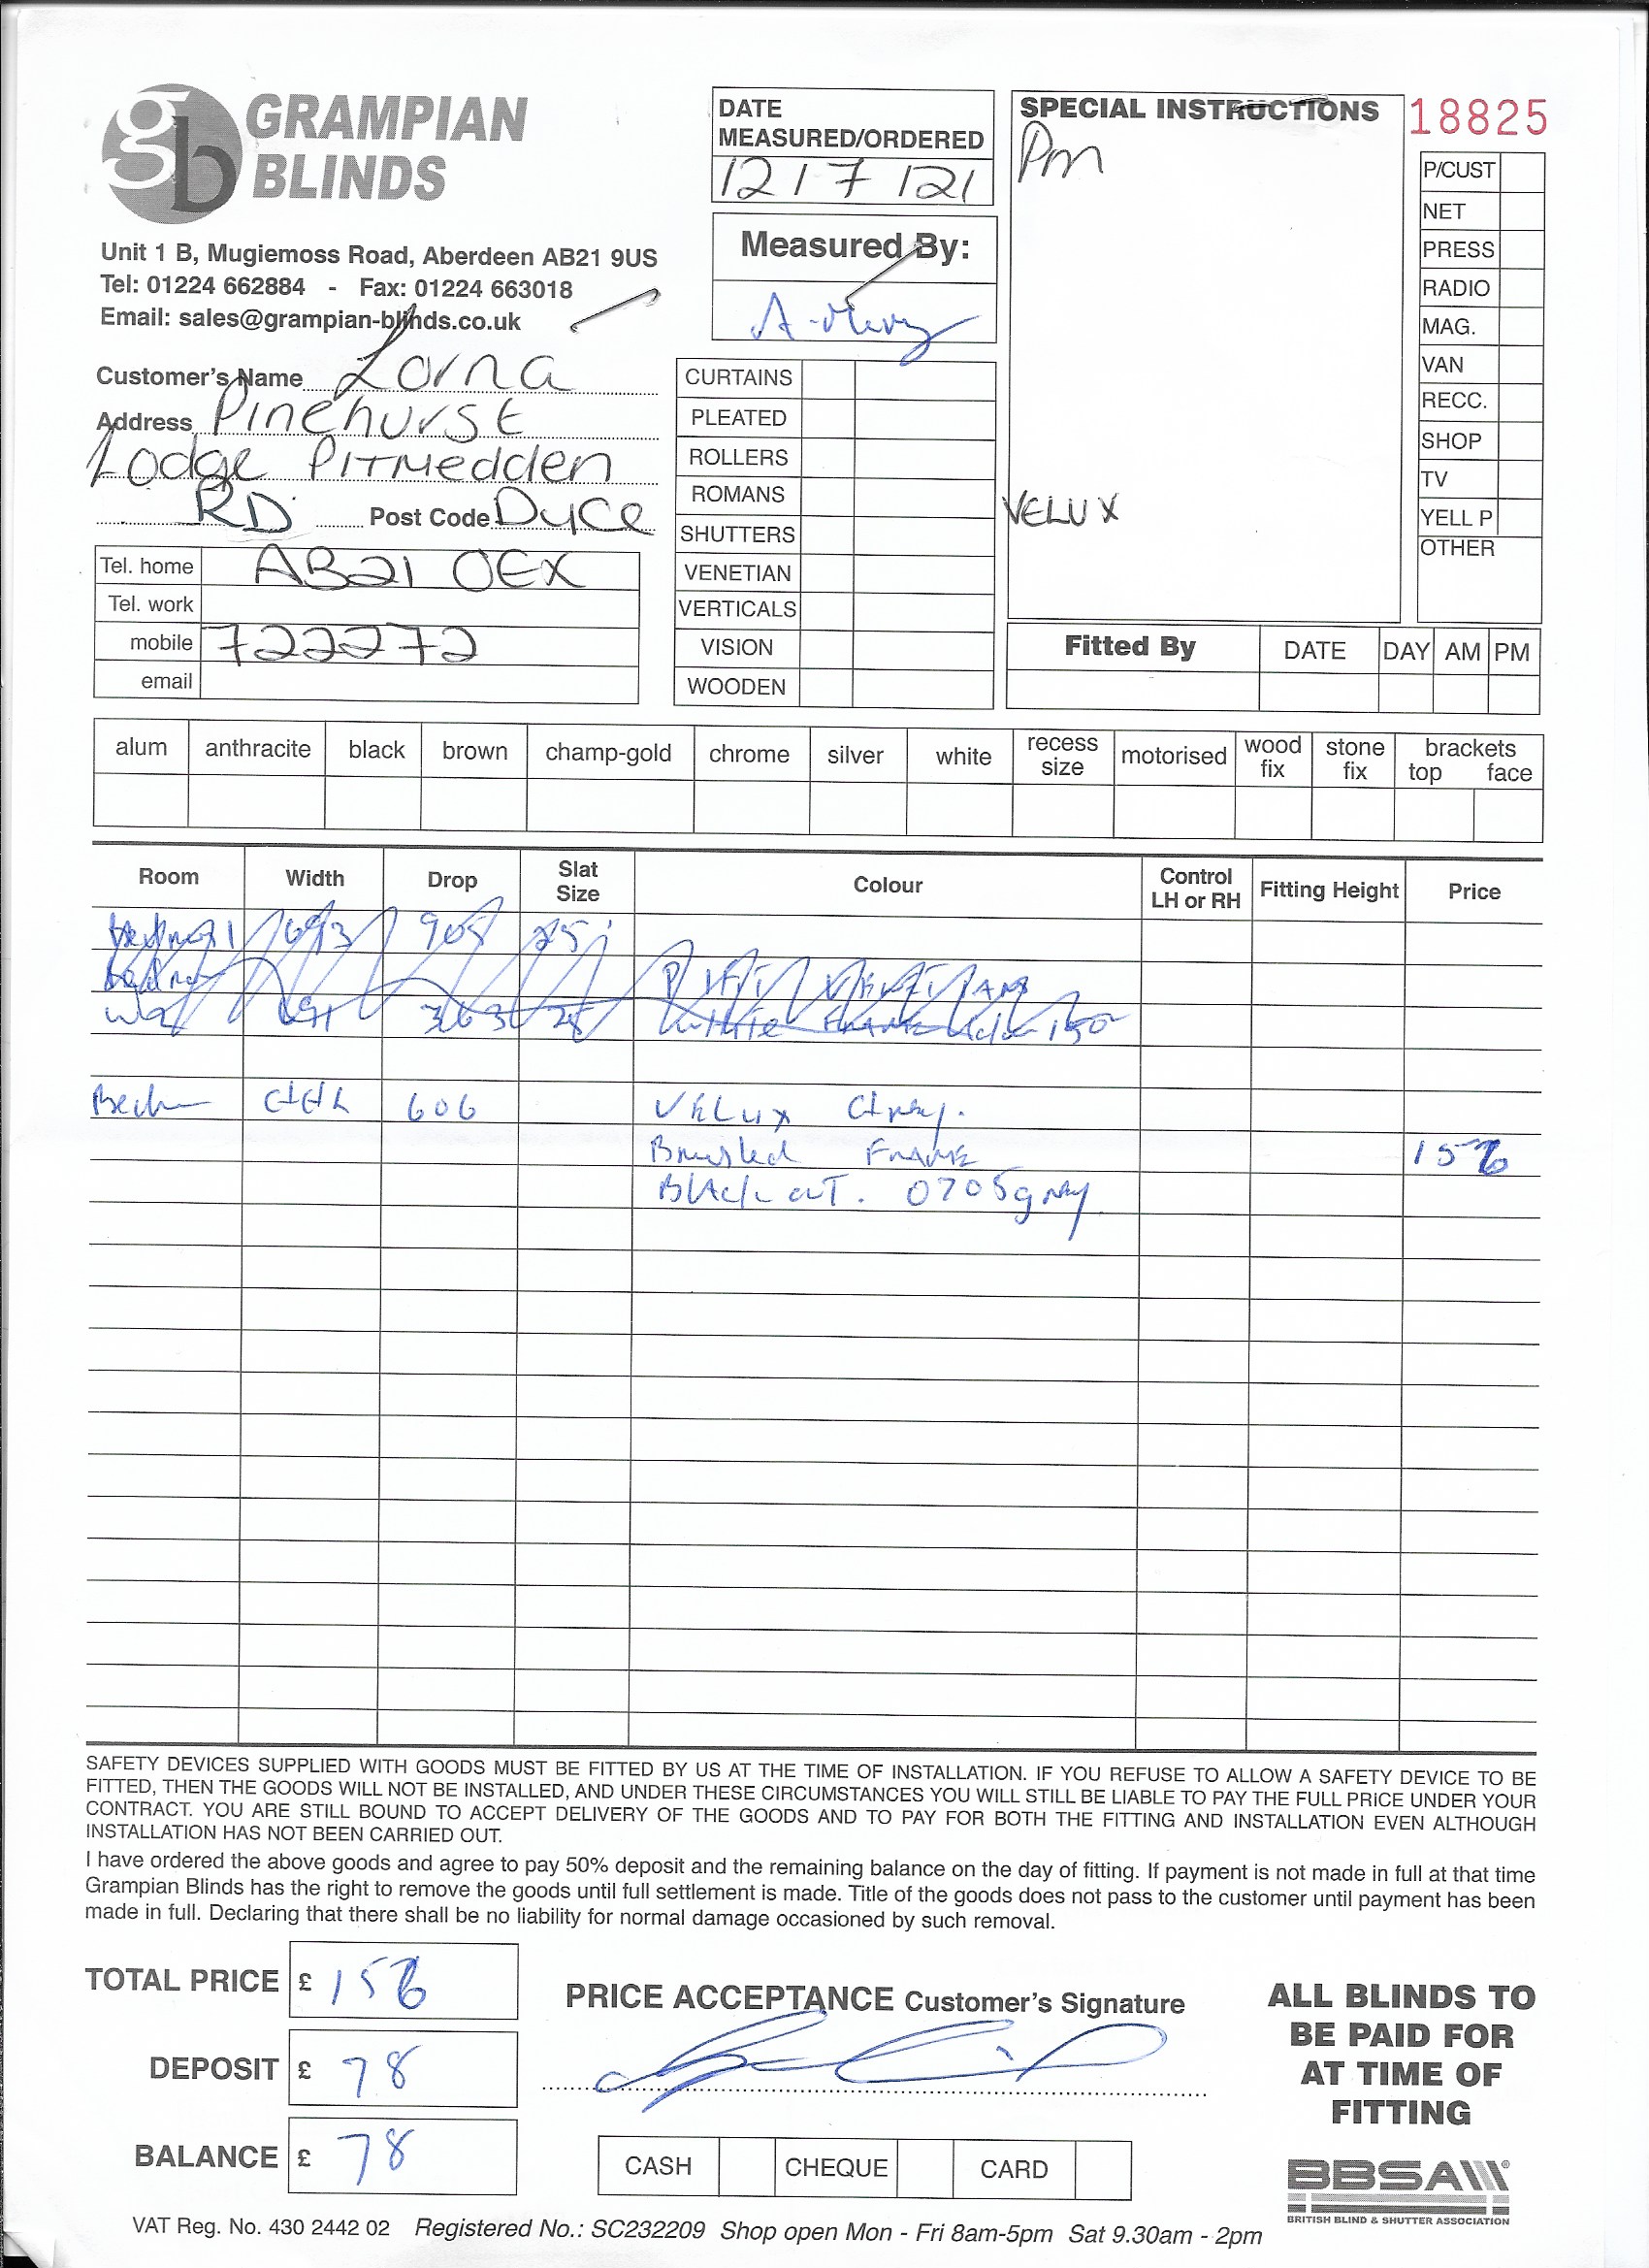 gb GRAMPIAN
BLINDS
Unit 1 B, Mugiemoss Road, Aberdeen AB21 9US
Tel: 01224 662884 - Fax: 01224 663018
Email: sales@grampian-blinds.co.uk
DATE
MEASURED/ORDERED
12/7/21
Measured By:
SPECIAL INSTRUCTIONS
Pm
VELUX
18825
P/CUST
NET
PRESS
RADIO
MAG.
VAN
RECC.
SHOP
TV
YELL P
OTHER
Customer's Name Lorna
Address Pinehurst
Lodge PITMedden
RD Post Code Dyce
Tel. home AB21 0EX
Tel. work
mobile 722272
email
CURTAINS
PLEATED
ROLLERS
ROMANS
SHUTTERS
VENETIAN
VERTICALS
VISION
WOODEN
Fitted By DATE DAY AM PM
alum anthracite black brown champ-gold chrome silver white recess size motorised wood fix stone fix brackets top face
Room Width Drop Slat Size Colour Control LH or RH Fitting Height Price
693 905 25
363 25 White FRAME
606 VELUX Grey.
Brushed FRAME 156
Blackout. 0705 grey
SAFETY DEVICES SUPPLIED WITH GOODS MUST BE FITTED BY US AT THE TIME OF INSTALLATION. IF YOU REFUSE TO ALLOW A SAFETY DEVICE TO BE
FITTED, THEN THE GOODS WILL NOT BE INSTALLED, AND UNDER THESE CIRCUMSTANCES YOU WILL STILL BE LIABLE TO PAY THE FULL PRICE UNDER YOUR
CONTRACT. YOU ARE STILL BOUND TO ACCEPT DELIVERY OF THE GOODS AND TO PAY FOR BOTH THE FITTING AND INSTALLATION EVEN ALTHOUGH
INSTALLATION HAS NOT BEEN CARRIED OUT.
I have ordered the above goods and agree to pay 50% deposit and the remaining balance on the day of fitting. If payment is not made in full at that time
Grampian Blinds has the right to remove the goods until full settlement is made. Title of the goods does not pass to the customer until payment has been
made in full. Declaring that there shall be no liability for normal damage occasioned by such removal.
TOTAL PRICE £ 156
DEPOSIT £ 78
BALANCE £ 78
PRICE ACCEPTANCE Customer's Signature
CASH CHEQUE CARD
ALL BLINDS TO
BE PAID FOR
AT TIME OF
FITTING
BBSA
BRITISH BLIND & SHUTTER ASSOCIATION
VAT Reg. No. 430 2442 02 Registered No.: SC232209 Shop open Mon - Fri 8am-5pm Sat 9.30am - 2pm